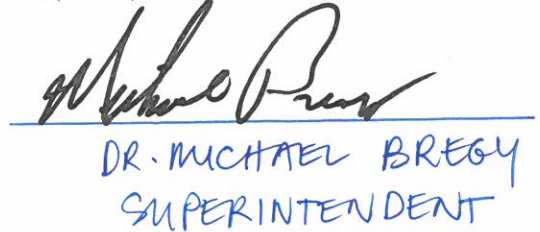 Michael Bregy
DR. MICHAEL BREGY
SUPERINTENDENT